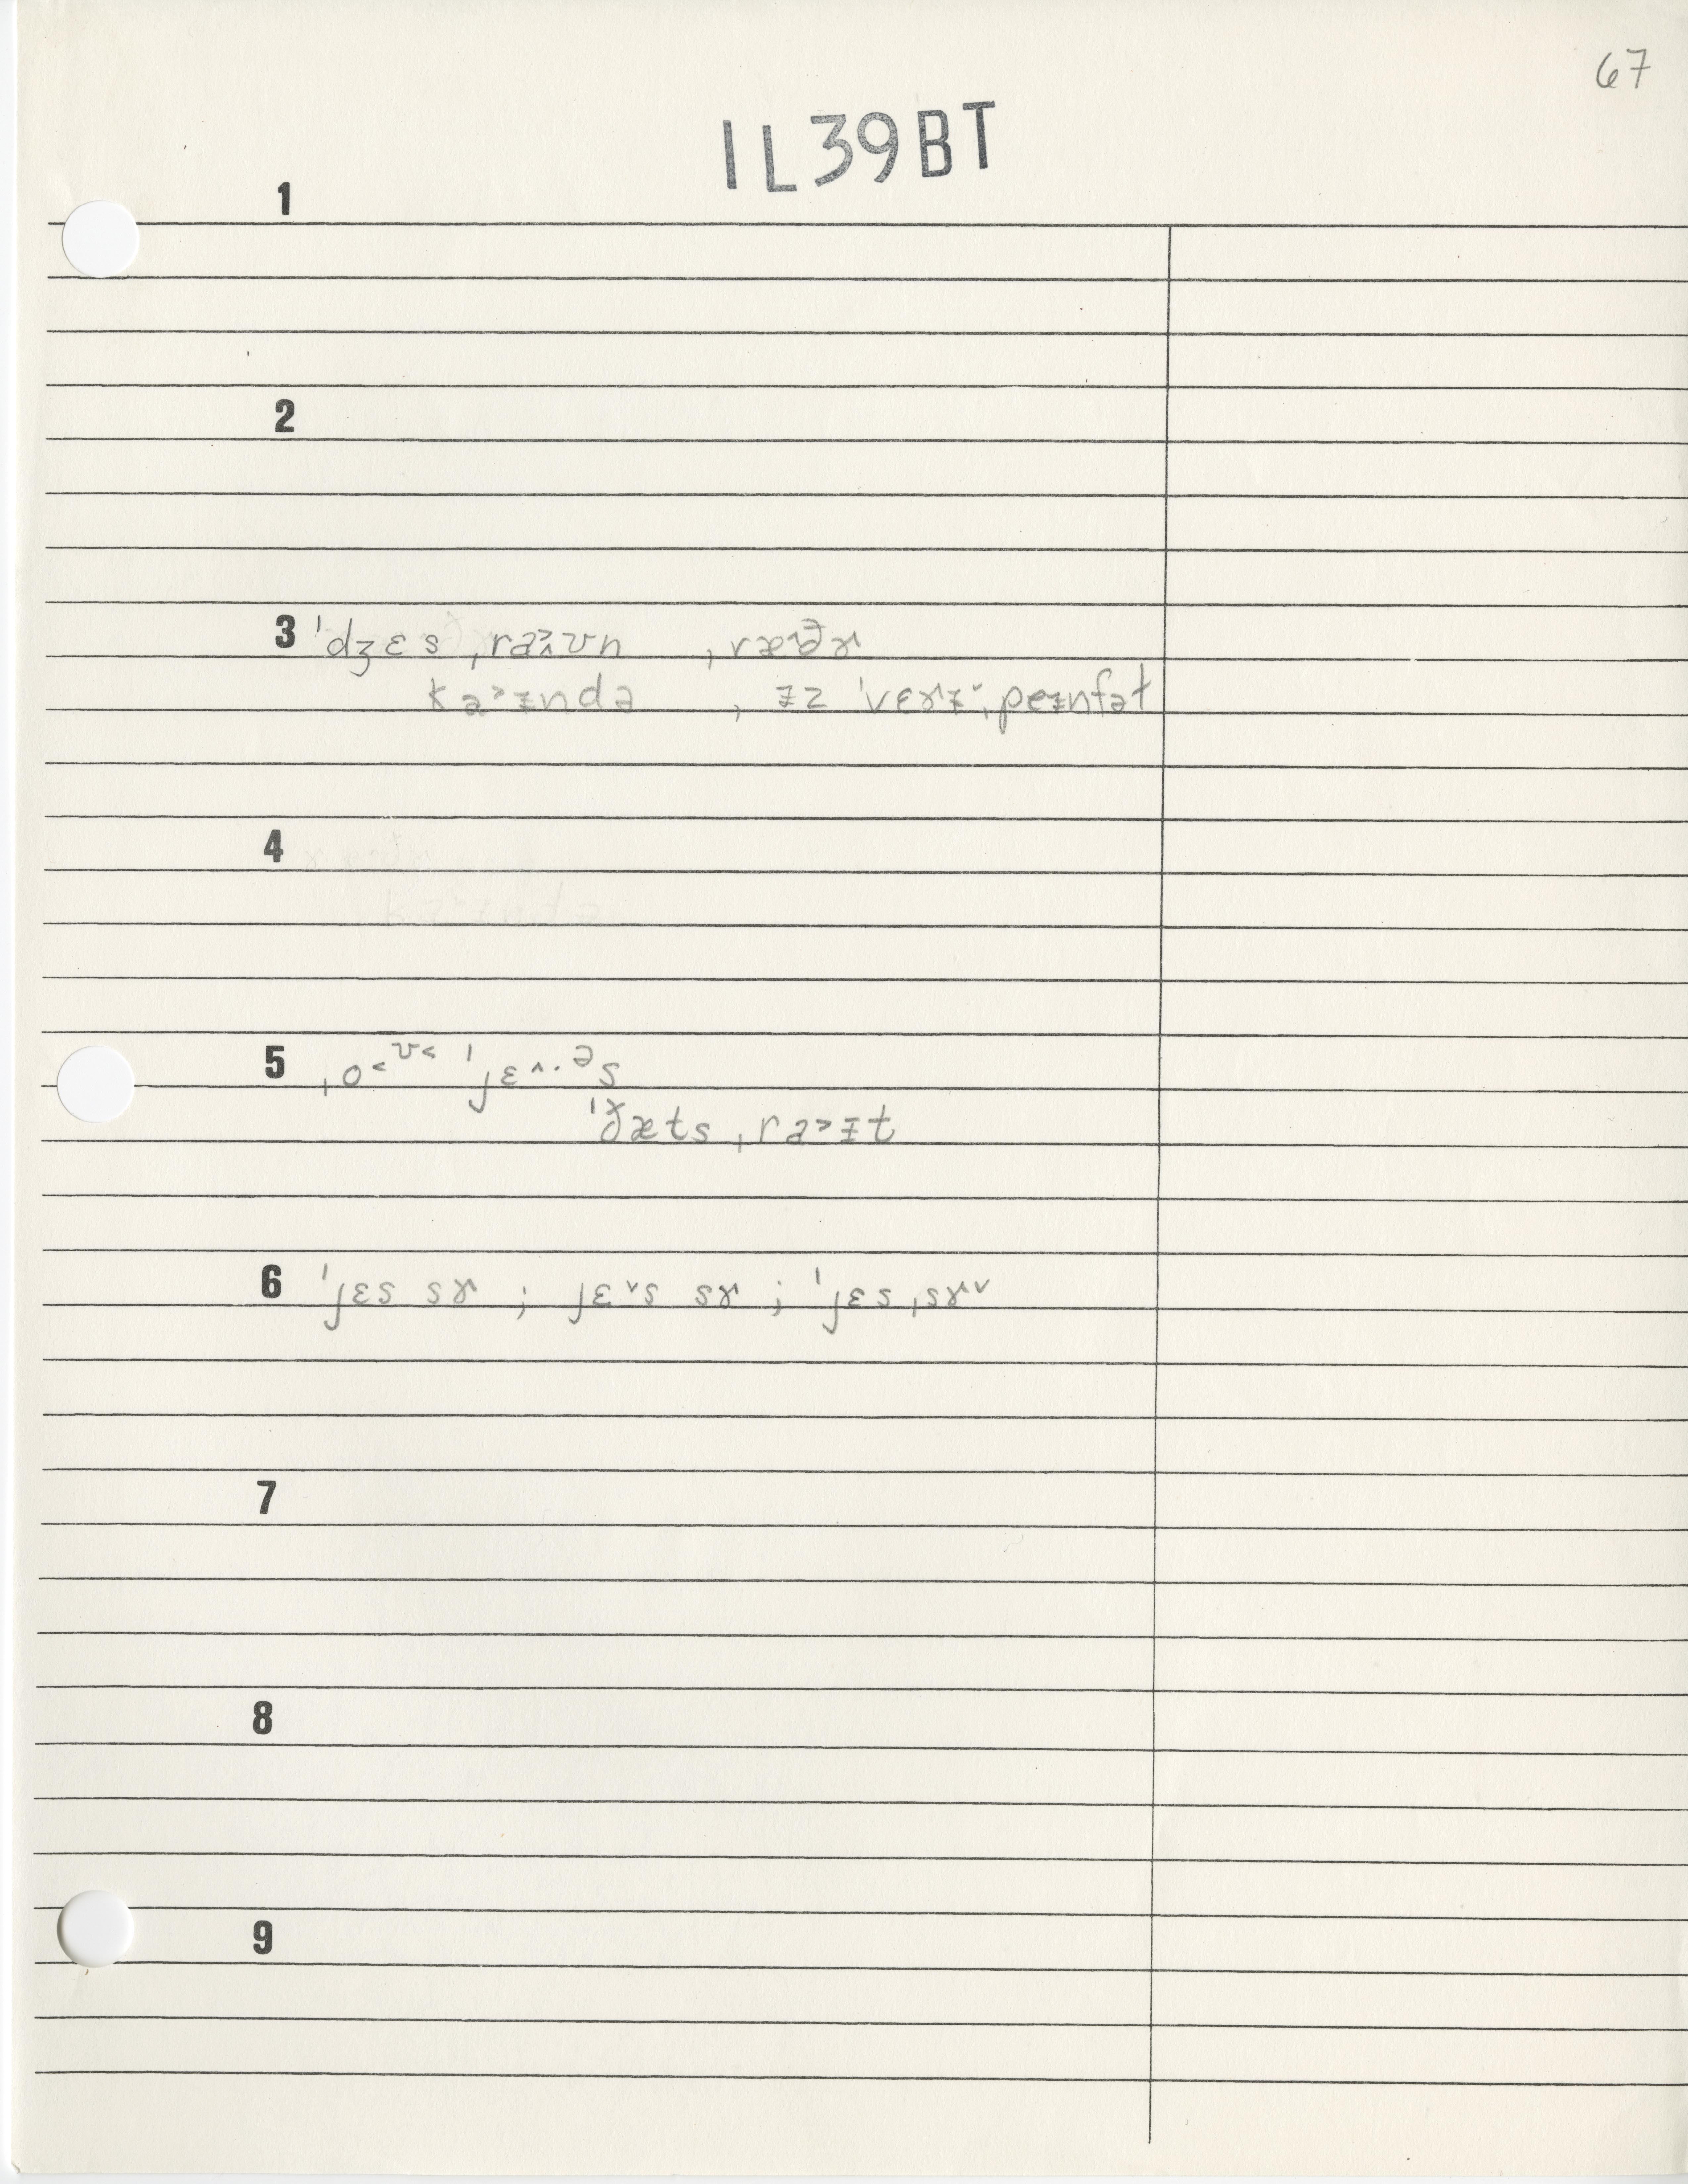 67
1L39BT
1
2
3 ˈdʒɛs ˌraᵻʊn , ræðɚ
ka˃ᵻndə , ᵻz ˈvɛɚᵻ ˌpeᵻnfəɫ
4
5 ˌo˂ʊ˂ ˈjɛ^·ᵊs
ˈðæts ˌra˃ᵻt
6 ˈjɛs sɚ ; jɛ˅s sɚ ; ˈjɛs ˌsɚ˅
7
8
9